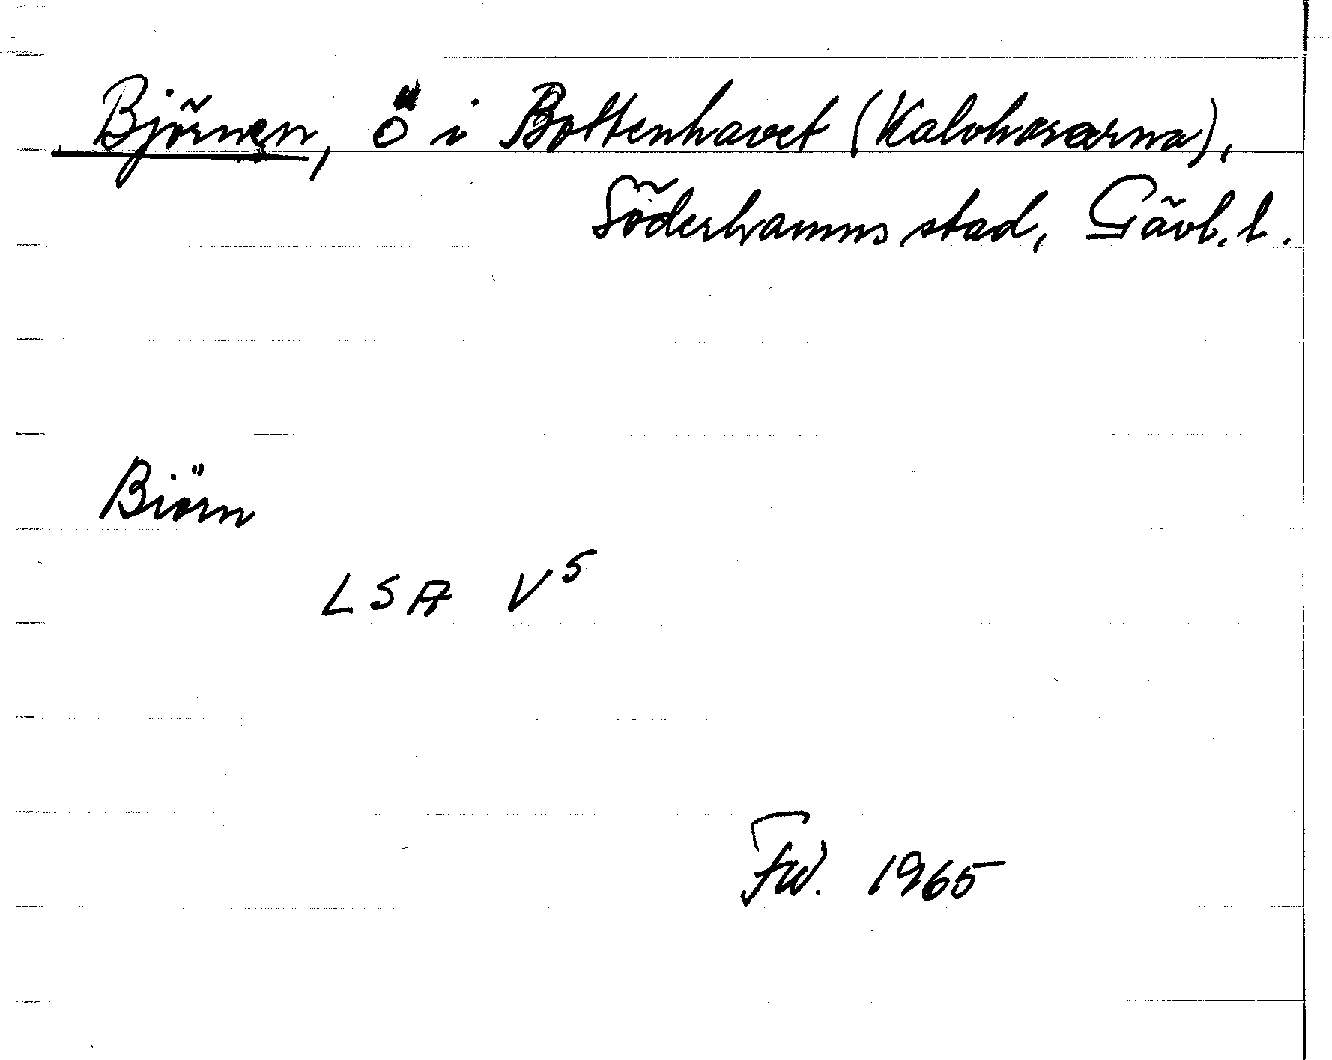 Björnen, ö i Bottenhavet (Kalvhararna),
Söderhamns stad, Gävl. l.
Biörn
LSA V⁵
Fw. 1965